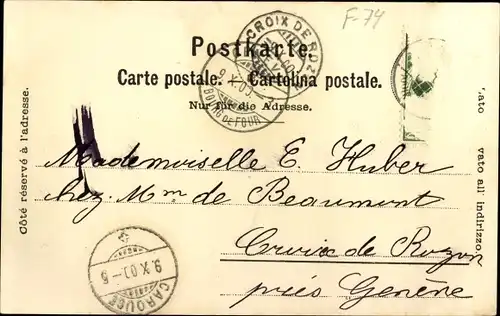 F-74
Postkarte.
Carte postale. — Cartolina postale.
Nur für die Adresse.
Côté réservé à l'adresse.
Lato vato all' indirizzo.
CROIX DE ROZ
9.X.00.
BOURG DE FOUR
Mademoiselle E. Huber
chez Mm de Beaumont
Croix de Rozon
près Genève
9.X.00.-5
CAROUGE